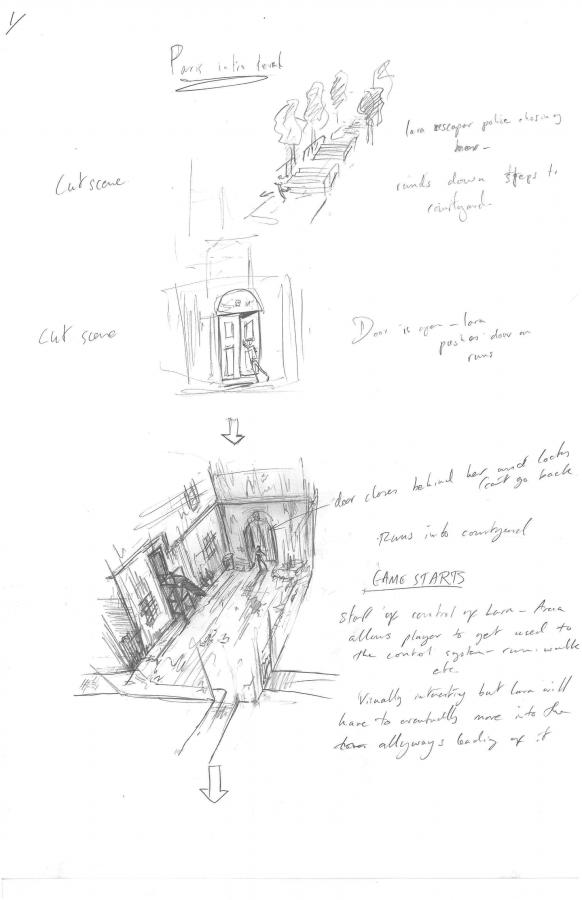 1/
Paris intro level
Cut scene
lara escapes police chasing
her -
runs down steps to
courtyard
Cut scene
Door is open - lara
pushes door an
runs
door closes behind her and locks
can't go back
Runs into courtyard
GAME STARTS
Start of control of Lara - Area
allows player to get used to
the control system - run - walk
etc
Visually interesting but Lara will
have to eventually move into the
allyways leading of it